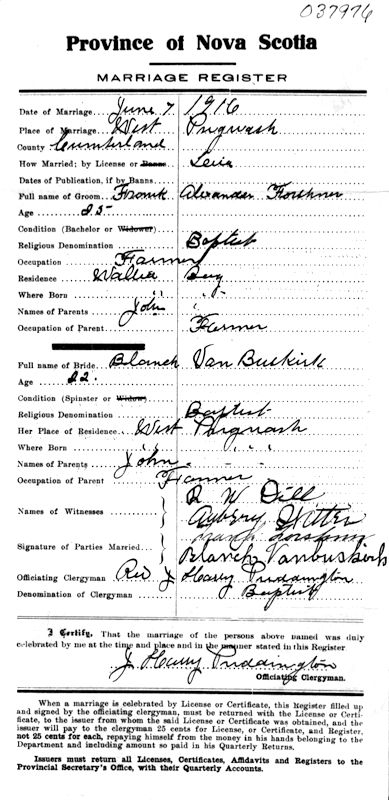 037976
Province of Nova Scotia
MARRIAGE REGISTER
Date of Marriage June 7 1916
Place of Marriage West Pugwash
County Cumberland
How Married; by License or Banns
Dates of Publication, if by Banns
Full name of Groom Frank Alexander
Age 25
Condition (Bachelor or Widower)
Religious Denomination Baptist
Occupation Farmer
Residence Wallace Bay
Where Born " "
Names of Parents John "
Occupation of Parent Farmer
Full name of Bride Blanch Van Buskirk
Age 22.
Condition (Spinster or Widow)
Religious Denomination Baptist
Her Place of Residence West Pugwash
Where Born " " "
Names of Parents John
Occupation of Parent Farmer
R W Dill
Names of Witnesses Aubrey
Signature of Parties Married
Blanch Vanbuskirk
Officiating Clergyman Rev J Harry Puddington
Denomination of Clergyman Baptist
I Certify, That the marriage of the persons above named was duly
celebrated by me at the time and place and in the manner stated in this Register
J Harry Puddington
Officiating Clergyman.
When a marriage is celebrated by License or Certificate, this Register filled up
and signed by the officiating clergyman, must be returned with the License or Certi-
ficate, to the issuer from whom the said License or Certificate was obtained, and the
issuer will pay to the clergyman 25 cents for License, or Certificate, and Register,
not 25 cents for each, repaying himself from the money in his hands belonging to the
Department and including amount so paid in his Quarterly Returns.
Issuers must return all Licenses, Certificates, Affidavits and Registers to the
Provincial Secretary's Office, with their Quarterly Accounts.